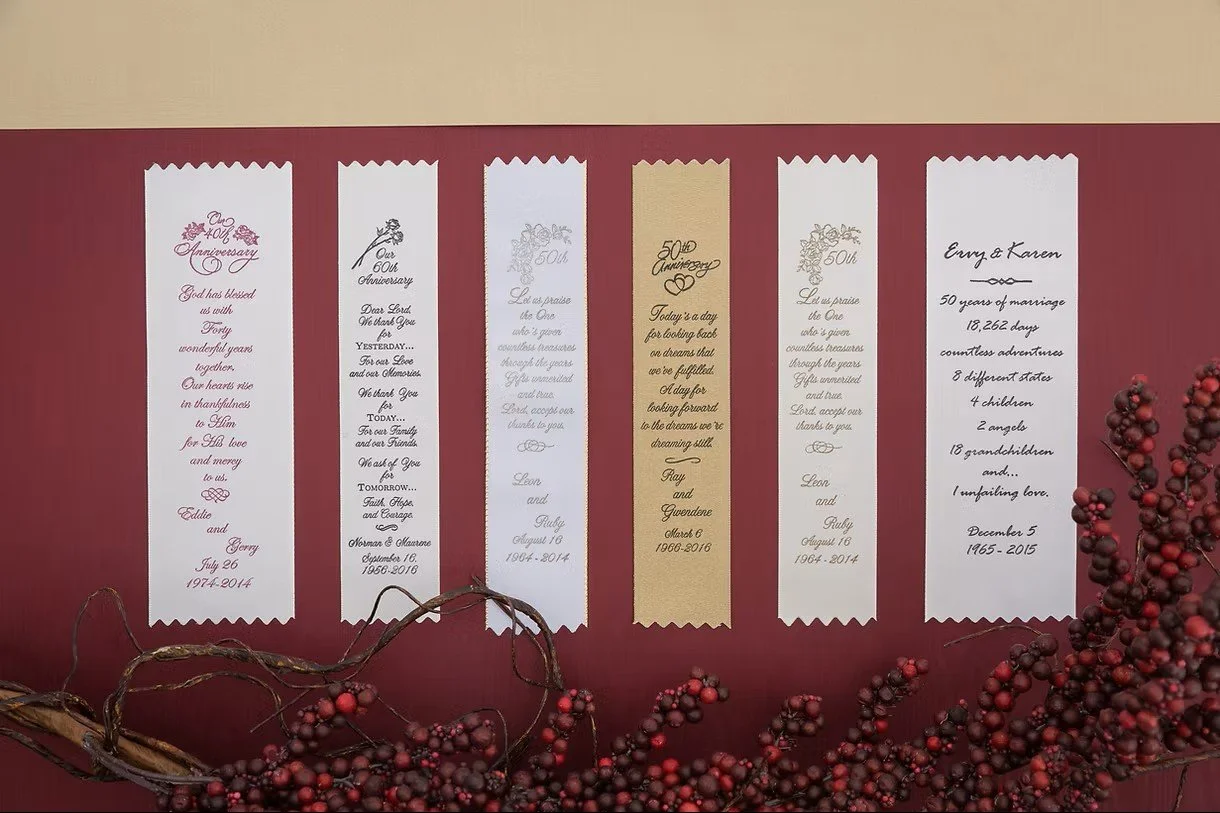 Our
40th
Anniversary
God has blessed
us with
Forty
wonderful years
together.
Our hearts rise
in thankfulness
to Him
for His love
and mercy
to us.
Eddie
and
Gerry
July 26
1974-2014
Our
60th
Anniversary
Dear Lord,
We thank You
for
YESTERDAY...
For our Love
and our Memories.
We thank You
for
TODAY...
For our Family
and our Friends.
We ask of You
for
TOMORROW...
Faith, Hope,
and Courage.
Norman & Maurene
September 16,
1956-2016
50th
Let us praise
the One
who's given
countless treasures
through the years.
Gifts unmerited
and true.
Lord, accept our
thanks to you.
Leon
and
Ruby
August 16
1964 - 2014
50th
Anniversary
Today's a day
for looking back
on dreams that
we've fulfilled.
A day for
looking forward
to the dreams we're
dreaming still.
Ray
and
Gwendene
March 6
1966-2016
50th
Let us praise
the One
who's given
countless treasures
through the years.
Gifts unmerited
and true.
Lord, accept our
thanks to you.
Leon
and
Ruby
August 16
1964 - 2014
Ervy & Karen
50 years of marriage
18,262 days
countless adventures
8 different states
4 children
2 angels
18 grandchildren
and...
1 unfailing love.
December 5
1965 - 2015